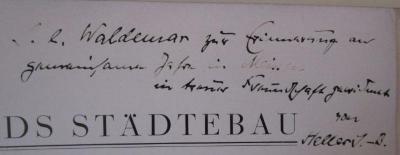 S. l. Waldemar zur Erinnerung an
gemeinsame Jahre in
in treuer Freundschaft gewidmet
von
DS STÄDTEBAU